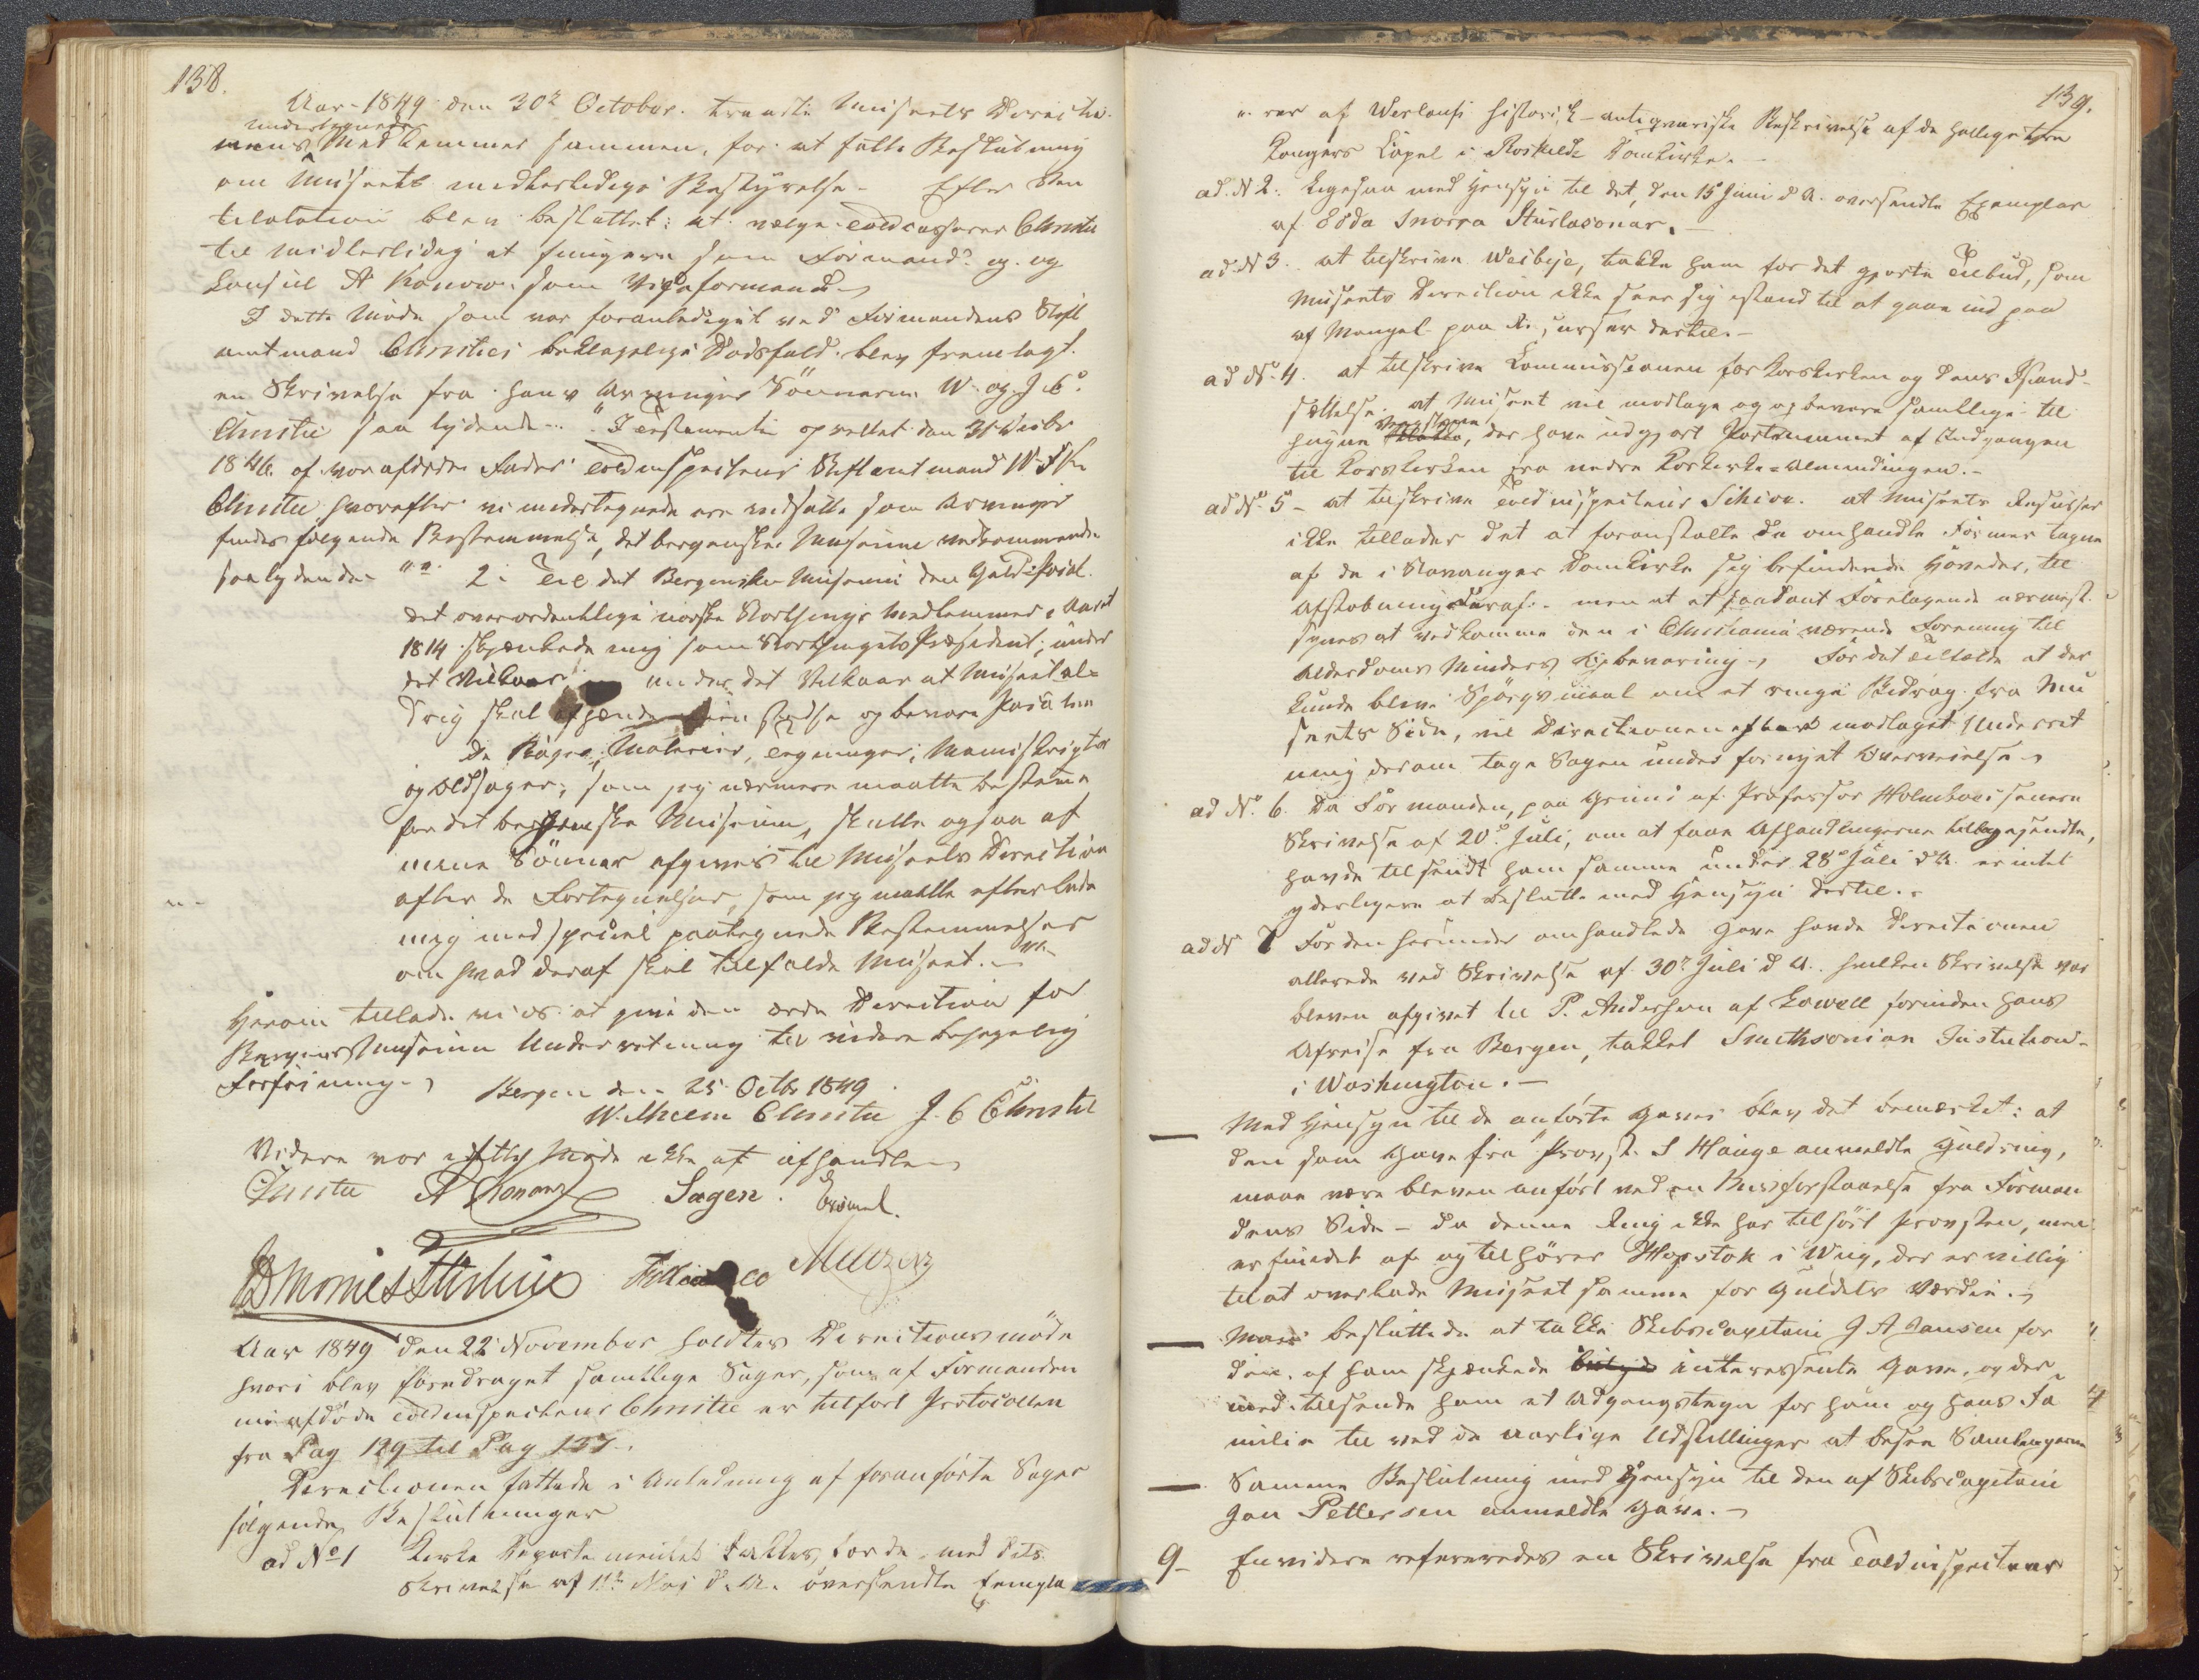 138.
Aar 1849 den 30te October traadte Museets Directions
undertegnede
Medlemmer sammen, for at fatte Beslutning
om Museets midlertidige Bestyrelse. Efter Ven
tilation blev besluttet: at vælge Toldcasserer Christie
til midlertidig at fungere som Formand og
Consul A Konow som Viceformand.
I dette Møde som var foranlediget ved Formandens Stift
amtmand Christies beklagelige Dødsfald blev fremlagt
en Skrivelse fra hans Arvinger Sönnerne W. og J. C.
Christie saa lydende: "I Testamente oprettet den 31 Decbr
1846 af vor afdøde Fader Toldinspecteur Stiftamtmand W F K
Christie hvorefter vi undertegnede ere indsatte som Arvinger
findes følgende Bestemmelse, det bergenske Museum vedkommende
saalydende "" 2. Til det Bergenske Museum den Guld
det overordentlige norske Storthings Medlemmer i Aaret
1814 skjænkede mig som Storthingets Præsident; under
det Vilkaar under det Vilkaar at Museet al-
drig skal afhænde den
De Bøger, Malerier, Tegninger, Manuskripter
og Oldsager, som jeg nærmere maatte bestemme
for det bergenske Museum, skulle ogsaa af
mine Sönner afgives til Museets Direction
efter de Fortegnelser, som jeg maatte efterlade
mig med special paategnede Bestemmelser
om hvad deraf skal tilfalde Museet.""
Herom tillade vi os at give den ærede Direction for
Bergens Museum Underretning til videre behagelig
Forføining.
Bergen den 25 Octbr 1849
Wilhelm Christie J. C Christie
Videre var i dette Møde ikke at afhandle
Christie A Konow Sagen.
Aar 1849 den 22 November holdtes Directionsmöde
hvori blev foredraget samtlige Sager, som af Formanden
nu afdøde Toldinspecteur Christie er tilført Protocollen
fra Pag 129 til Pag 137.
Directionen fattede i Anledning af foranførte Sager
følgende Beslutninger
ad No 1 Kirke Departementet takkes for de med dets
Skrivelse af 11te Mai d. A. oversendte Exempla
139.
rer af Werlaufs historisk-antiqvariske Beskrivelse af de hellige tre
Kongers Capel i Roskilde Domkirke.
ad. N 2. Ligesaa med Hensyn til det, den 15 Juni d A. oversendte Exemplar
af Edda Snorra Sturlasonar.
ad. N 3. at tilskrive Weibye, takke ham for det gjorte Tilbud, som
Museets Direction ikke seer sig istand til at gaae ind paa
af Mangel paa Resurser dertil.
ad No. 4. at tilskrive Commissionen for Korskirken og dens Istand-
sættelse. at Museet vil modtage og opbevare samtlige til
hugne , der have udgjort Portrummet af Indgangen
til Korskirken fra nedre Korskirke-Almindingen.
ad No. 5 - at tilskrive Toldinspecteur Schiøtz. at Museets Resurser
ikke tillader det at foranstalte de omhandlede Former tagne
af de i Stavanger Domkirke sig befindende Hoveder, til
Afstøbning deraf. - men at et saadant Foretagende nærmest
synes at vedkomme den i Christiania værende Forening til
Oldtidsminders Opbevaring. For det Tilfælde at der
kunde blive Spørgsmaal om et ringe Bidrag fra Mu
seets Side, vil Directionen efter modtaget Underret
ning derom tage Sagen under fornyet Overveielse.
ad No. 6. Da Formanden, paa Grund af Professor Holmboes senere
Skrivelse af 20de Juli, om at faae Afhandlingerne tilbagesendte,
havde tilsendt ham samme under 28de Juli d A. er intet
yderligere at beslutte med Hensyn dertil.
ad No 7 For den herunder omhandlede Gave havde Directionen
allerede ved Skrivelse af 30te Juli d A. hvilken Skrivelse var
bleven afgivet til P. Andersen af Lowell forinden hans
Afreise fra Bergen, takket Smithsonian Institution
i Washington. -
- Med Hensyn til de anførte Gaver blev det bemærket: at
den som Gave fra Provst S Hauge anmeldte Guldring,
maa være bleven anført ved en Misforstaaelse fra Forman
dens Side - da denne Ring ikke har tilhört Provsten, men
er fundet af og tilhörer Hopstok i Wiig, der er villig
til at overlade Museet samme for Guldets Værdie.
- Man besluttede at takke Skibscapitain J A Jansen for
den af ham skjænkede interessante Gave, og der
med tilsende ham et Adgangstegn for ham og hans Fa
milie til ved de aarlige Udstillinger at besee Samlingerne
- Samme Beslutning med Hensyn til den af Skibscapitain
Jan Pettersen anmeldte Gave.
9- Envidere refereredes en Skrivelse fra Toldinspecteur